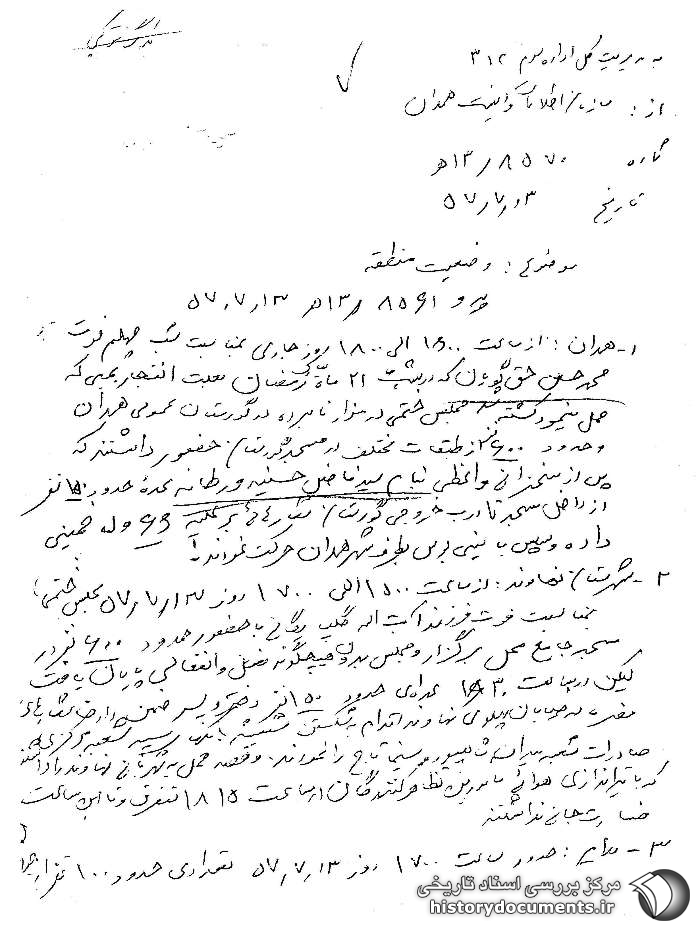 به مدیریت کل اداره سوم ۳۱۲
از : سازمان اطلاعات و امنیت همدان
شماره ۸۵۷۰ / ۱۳ﻫ
تاریخ ۵۷٫۷٫۱۳
موضوع : وضعیت منطقه
پیرو ۸۵۶۱ / ۱۳ﻫ ۵۷٫۷٫۱۳
۱- همدان : از ساعت ۱۶۰۰ الی ۱۸۰۰ روز جاری بمناسبت شب چهلم فوت
محمدحسین حق گویان که در شب ۲۱ ماه رمضان بعلت انفجار بمبی که
حمل مینمود کشته مجلس ختمی در مزار نامبرده در گورستان عمومی همدان
و حدود ۶۰۰ نفر از طبقات مختلف در مسجد گورستان حضور داشتند که
پس از سخنرانی واعظی بنام سید فاضل حسینیه عده حدود نفر
از داخل مسجد تا درب خروجی گورستان شعارهائی بر علیه ۶۶ و له خمینی
داده و سپس با مینی بوس بطرف شهر همدان حرکت نمودند
۲- شهرستان نهاوند : از ساعت ۱۵۰۰ الی ۱۷۰۰ روز ۵۷٫۷٫۱۳ مجلس ختمی
بمناسبت فوت فرزند آیت اله گلپایگانی با حضور حدود ۶۰۰ نفر در
مسجد جامع محل برگزار و مجلس بدون هیچگونه فعل و انفعالی پایان یافت
لیکن در ساعت تعدادی حدود ۱۵۰ نفر دختر و پسر ضمن دادن شعارهای
مضره در خیابان پهلوی نهاوند اقدام بشکستن شیشه بانک سپه شعبه مرکزی
صادرات شعبه میدان و سینما تاج را نمودند. و قصد حمله به شهربانی نهاوند را داشتند
که با تیراندازی هوائی مامورین تظاهر کنندگان در ساعت ۱۸۱۵ متفرق و تا این ساعت
خسارت جانی نداشتند
۳- ملایر : حدود ساعت ۱۷۰۰ روز ۵۷٫۷٫۱۳ تعدادی حدود ۱۰۰ نفر از
مرکز بررسی اسناد تاریخی
historydocuments.ir